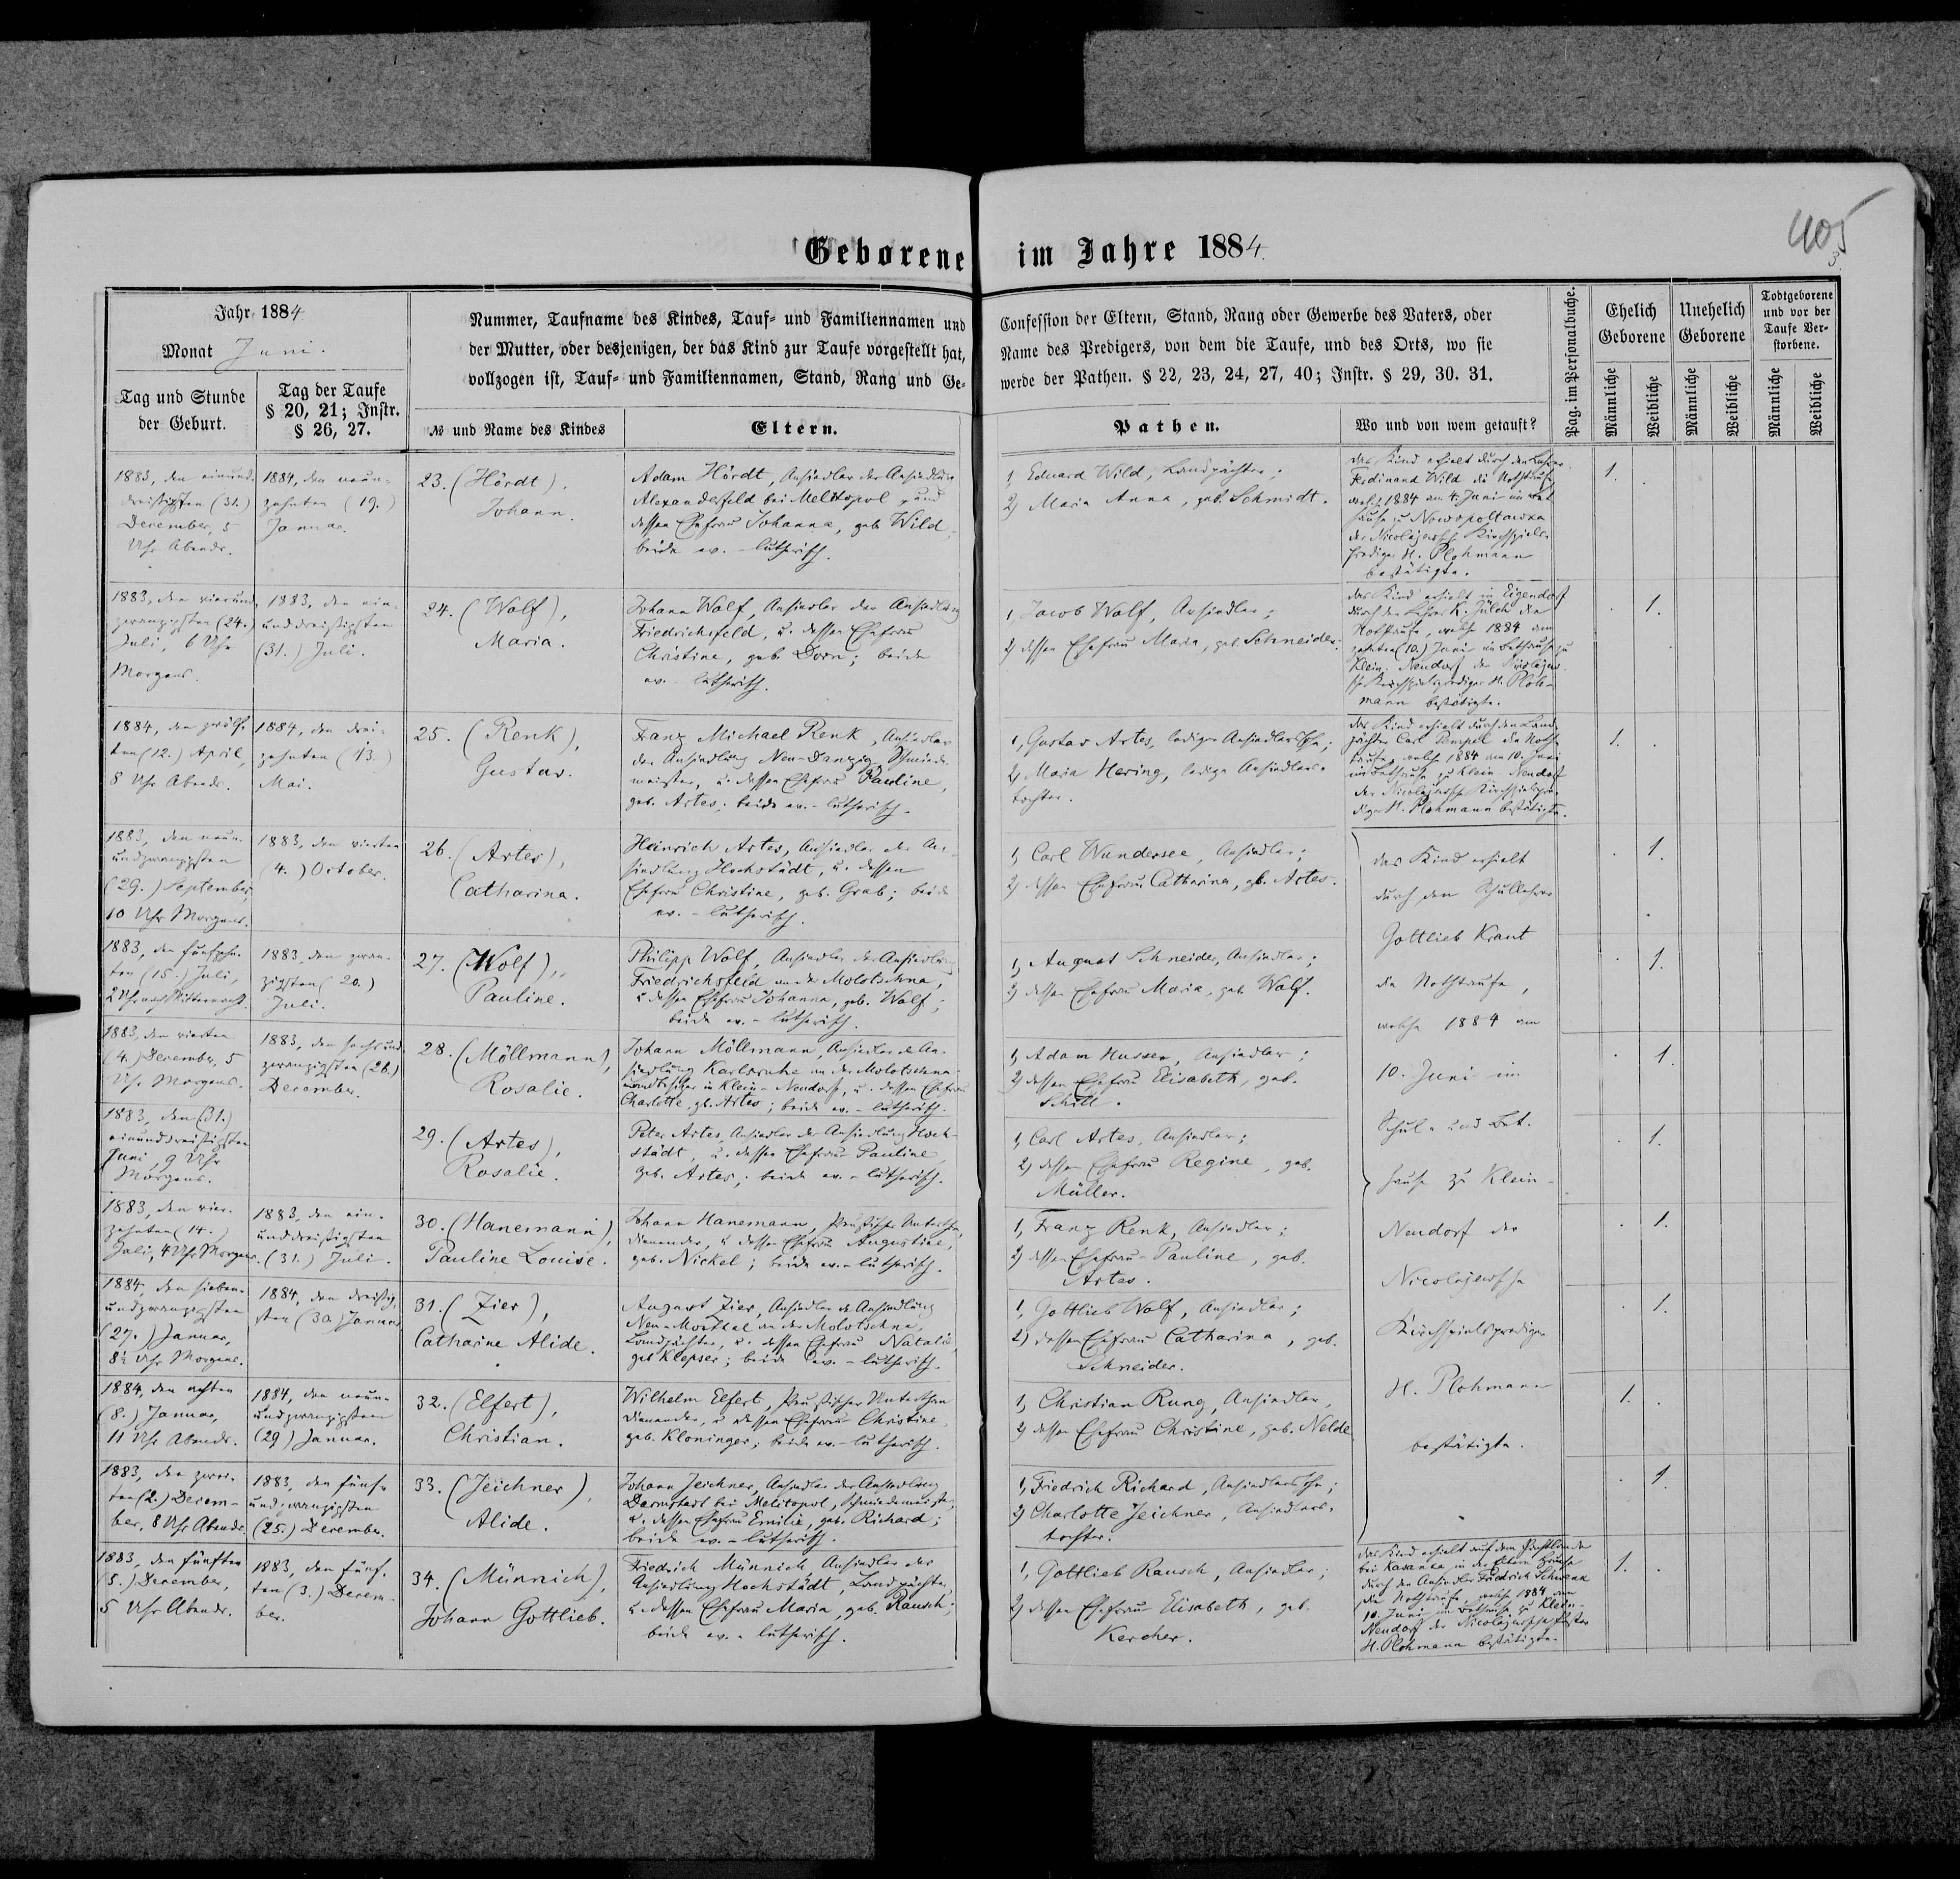 405
3.
Geborene im Jahre 1884.
Jahr 1884
Monat Juni.
Tag und Stunde
der Geburt.
Tag der Taufe
§ 20, 21; Instr.
§ 26, 27.
Nummer, Taufname des Kindes, Tauf- und Familiennamen und
der Mutter, oder desjenigen, der das Kind zur Taufe vorgestellt hat,
vollzogen ist, Tauf- und Familiennamen, Stand, Rang und Ge-
№ und Name des Kindes
Eltern.
Confession der Eltern, Stand, Rang oder Gewerbe des Vaters, oder
Name des Predigers, von dem die Taufe, und des Orts, wo sie
werde der Pathen. § 22, 23, 24, 27, 40; Instr. § 29, 30. 31.
Pathen.
Wo und von wem getauft?
Pag. im Personalbuche.
Ehelich
Geborene
Unehelich
Geborene
Todtgeborene
und vor der
Taufe Ver-
storbene.
Männliche
Weibliche
Männliche
Weibliche
Männliche
Weibliche
1883, den einund-
dreißigsten (31.)
December, 5
Uhr Abends.
1884, den neun-
zehnten (19.)
Januar.
23. (Hördt).
Johann.
Adam Hördt, Ansiedler der Ansiedlung
Alexanderfeld bei Melitopol, und
dessen Ehefrau Johanna, geb. Wild;
beide ev.-lutherisch.
1, Eduard Wild, Landpächter;
2) Maria Anna, geb. Schmidt.
das Kind erhielt durch den Lehrer
Ferdinand Wild die Nothtaufe,
welche 1884 am 4. Juni im Bet-
hause zu Nowopoltawka
der Nicolajewsche Kirchspiels-
prediger H. Plohmann
bestätigte.
1.
1883, den vierund-
zwanzigsten (24.)
Juli, 6 Uhr
Morgens.
1883, den ein-
unddreißigsten
(31.) Juli.
24. (Wolf),
Maria.
Johann Wolf, Ansiedler der Ansiedlung
Friedrichsfeld, u. dessen Ehefrau
Christine, geb. Dorn; beide
ev.-lutherisch.
1, Jacob Wolf, Ansiedler;
2) dessen Ehefrau Maria, geb. Schneider.
das Kind erhielt in Eigendorf
durch den Lehrer K. die
Nothtaufe, welche 1884 am
zehnten (10.) Juni im Bethause zu
Klein-Neudorf der Nicolajew-
sche Kirchspielsprediger H. Ploh-
mann bestätigte.
1.
1884, den zwölf-
ten (12.) April,
8 Uhr Abends.
1884, den drei-
zehnten (13.)
Mai.
25. (Renk),
Gustav.
Franz Michael Renk, Ansiedler
der Ansiedlung Neu-Danzig, Schmiede-
meister, u. dessen Ehefrau Pauline,
geb. Artes; beide ev.-lutherisch.
1, Gustav Artes, lediger Ansiedlerssohn;
2) Maria Hering, ledige Ansiedlers-
tochter.
das Kind erhielt durch den Land-
pächter Carl Pempel die Noth-
taufe, welche 1884 am 10. Juni
im Bethause zu Klein-Neudorf
der Nicolajewsche Kirchspielspre-
diger H. Plohmann bestätigte.
1.
1883, den neun-
undzwanzigsten
(29.) September,
10 Uhr Morgens.
1883, den vierten
(4.) October.
26. (Artes),
Catharina.
Heinrich Artes, Ansiedler der An-
siedlung Hochstädt, u. dessen
Ehefrau Christine, geb. Grab; beide
ev.-lutherisch.
1, Carl Wundersee, Ansiedler;
2) dessen Ehefrau Catharina, gb. Artes.
1.
das Kind erhielt
durch den Schullehrer
Gottlieb Kraut
die Nothtaufe,
welche 1884 am
10. Juni im
Schul- und Bet-
hause zu Klein-
Neudorf der
Nicolajewsche
Kirchspielsprediger
H. Plohmann
bestätigte.
1883, den fünfzehn-
ten (15.) Juli,
2 Uhr nach Mitternacht.
1883, den zwan-
zigsten (20.)
Juli.
27. (Wolf),
Pauline.
Philipp Wolf, Ansiedler der Ansiedlung
Friedrichsfeld an der Molotschna,
u. dessen Ehefrau Johanna, geb. Wolf;
beide ev.-lutherisch.
1, August Schneider, Ansiedler;
2) dessen Ehefrau Maria, geb. Wolf.
1.
1883, den vierten
(4.) December, 5
Uhr Morgens.
1883, den sechsund-
zwanzigsten (26.)
December.
28. (Möllmann),
Rosalie.
Johann Möllmann, Ansiedler d. An-
siedlung Karlsruhe an der Molotschna,
Landbesitzer in Klein-Neudorf, u. dessen Ehefrau
Charlotte, gb. Artes; beide ev.-lutherisch.
1, Adam Husser, Ansiedler;
2) dessen Ehefrau Elisabeth, geb.
Schill.
1.
1883, den (31.)
einunddreißigsten
Juni, 9 Uhr
Morgens.
29. (Artes),
Rosalie.
Peter Artes, Ansiedler der Ansiedlung Hoch-
städt, u. dessen Ehefrau Pauline,
geb. Artes; beide ev.-lutherisch.
1, Carl Artes, Ansiedler;
2) dessen Ehefrau Regine, geb.
Müller.
1.
1883, den vier-
zehnten (14.)
Juli, 4 Uhr Morgens.
1883, den ein-
unddreißigsten
(31.) Juli.
30. (Hanemann),
Pauline Louise.
Johann Hanemann, Preußischer Unterthan,
Dienender, u. dessen Ehefrau Augustine,
geb. Nickel; beide ev.-lutherisch.
1, Franz Renk, Ansiedler;
2) dessen Ehefrau Pauline, geb.
Artes.
1.
1884, den sieben-
undzwanzigsten
(27.) Januar,
8½ Uhr Morgens.
1884, den dreißig-
sten (30.) Januar
31. (Zier),
Catharine Alide.
August Zier, Ansiedler d. Ansiedlung
Neu-Monthal an der Molotschna,
Landpächter, u. dessen Ehefrau Natalie
geb. Klepser; beide ev.-lutherisch.
1, Gottlieb Wolf, Ansiedler;
2) dessen Ehefrau Catharina, geb.
Schneider.
1.
1884, den achten
(8.) Januar,
11 Uhr Abends.
1884, den neun-
undzwanzigsten
(29) Januar.
32. (Elfert),
Christian.
Wilhelm Elfert, Preußischer Unterthan
Dienender, u. dessen Ehefrau Christine,
geb. Kloninger; beide ev.-lutherisch.
1, Christian Rung, Ansiedler,
2) dessen Ehefrau Christine, geb. Nelde
1.
1883, den zwei-
ten (2.) Decem-
ber, 8 Uhr Abends.
1883, den fünf-
undzwanzigsten
(25.) December.
33. (Jeichner),
Alide.
Johann Jeichner, Ansiedler der Ansiedlung
Darmstadt bei Melitopol, Schmiedemeister,
u. dessen Ehefrau Emilie, geb. Richard;
beide ev.-lutherisch.
1, Friedrich Richard, Ansiedlerssohn;
2) Charlotte Jeichner, Ansiedlers-
tochter.
1.
1883, den fünften
(5.) December,
5 Uhr Abends.
1883, den fünf-
ten (3.) Decem-
ber.
34. (Münnich),
Johann Gottlieb.
Friedrich Münnich, Ansiedler der
Ansiedlung Hochstädt, Landpächter,
u. dessen Ehefrau Maria, geb. Rausch;
beide ev.-lutherisch.
1, Gottlieb Rausch, Ansiedler;
2) dessen Ehefrau Elisabeth, geb.
Kercher.
das Kind erhielt auf dem Pachtlande
bei Kasanka in der Eltern Hause
durch den Ansiedler Friedrich Schwenk
die Nothtaufe, welche 1884 am
10. Juni im Bethause zu Klein-
Neudorf der Nicolajewsche Pastor
H. Plohmann bestätigte.
1.